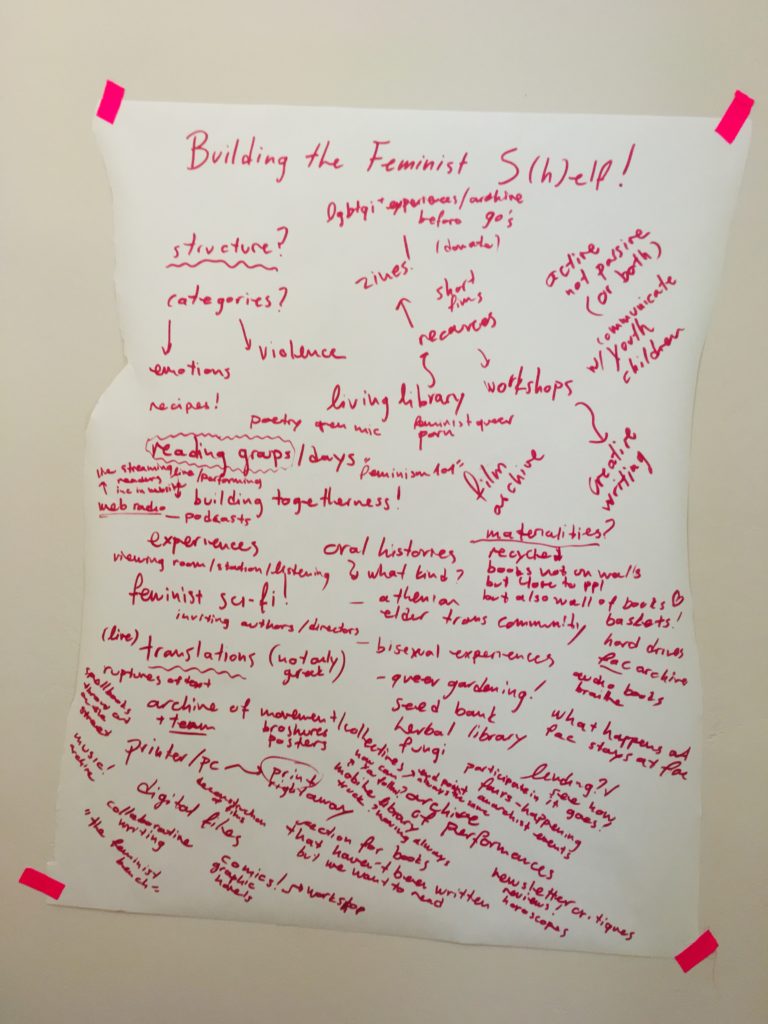 Building the Feminist S(h)elf!
lgbtqi+ experiences/archive
before 90's
(donate)
structure?
zines!
active
not passive
(or both)
categories?
short
fims
recources
communicate
w/ youth
children
emotions
violence
recipes!
living library
workshops
poetry open mic
feminist queer
porn
reading groups/days
"feminism 101"
film
archive
creative
writing
live streaming
readers
live/performing
building togetherness!
web radio
podcasts
experiences
viewing room/station/listening
feminist sci-fi!
inviting authors/directors
oral histories
what kind?
- athenian
elder trans community
- bisexual experiences
- queer gardening!
seed bank
herbal library
fungi
materialities?
recycled
books not on walls
but close to ppl
but also wall of books ♡
baskets!
hard drives
fac archive
audio books
braille
what happens at
fac stays at fac
(live)
translations (not only
greek)
ruptures of text
spellbooks
archive of movement/collectives
+ team
broshures
posters
music!
archive
printer/pc
print
right away
digital files
collaborative
writing
"the feminist
bench"
comics!
graphic
novels
workshop
mobile library
truck sharing always
archive of performances
section for books
that haven't been written
but we want to read
lending?
see how
it goes!
participate in
fairs-happening
anarchist events
newsletter critiques
reviews!
horoscopes